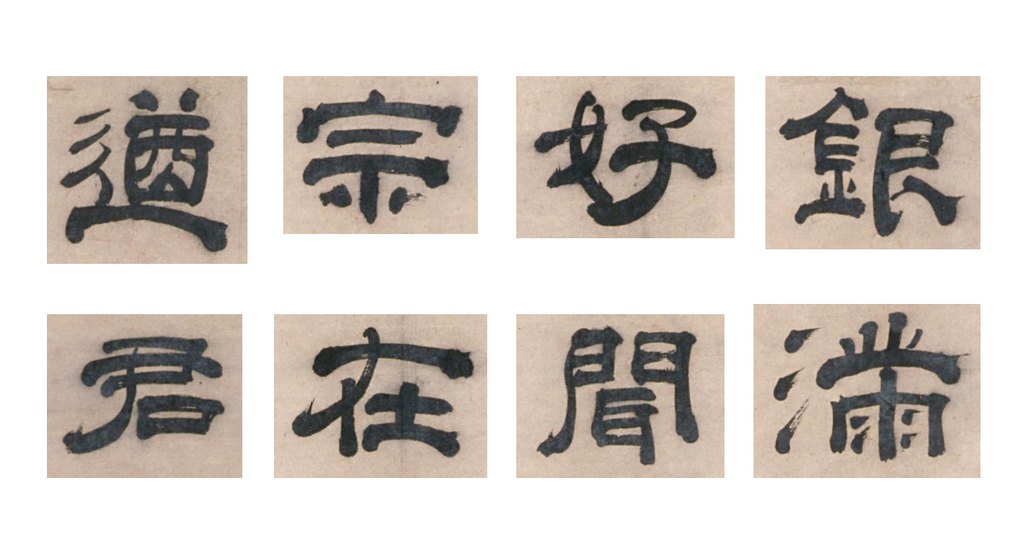 遒宗好銀
君在聞滿